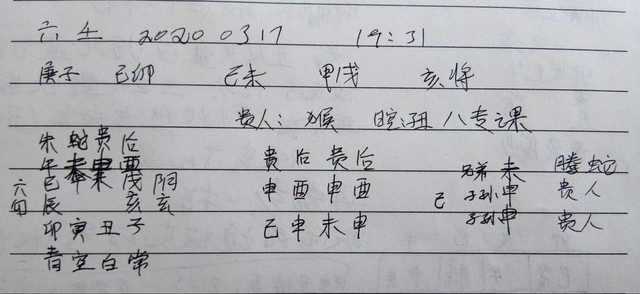 六壬 2020 0317 19:31
庚子 己卯 己未 甲戌 亥将
贵人:猴 丑 八专课
朱 蛇 贵 后
午 未 申 酉 贵 后 贵 后 兄弟 未 腾蛇
巳 戌 阴 申 酉 申 酉 己 子孙 申 贵人
辰 亥 己 申 未 申 子孙 申 贵人
卯 寅 丑 子
青 空 白 常